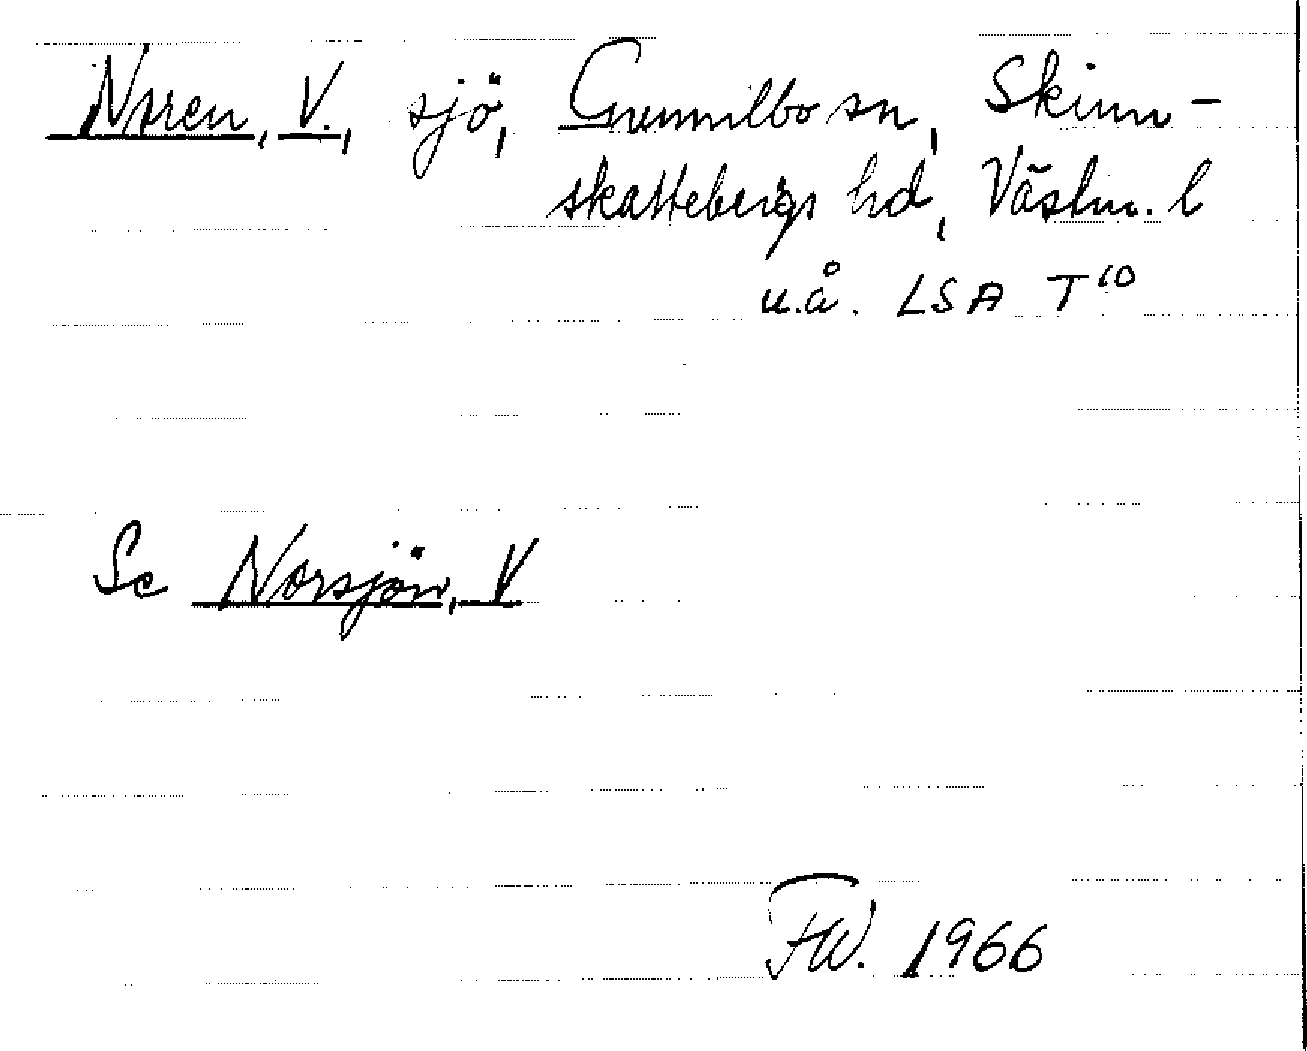 Noren, V., sjö, Gunnilbo sn, Skinn-
skattebergs hd, Västm. l
u.å. LSA T 10
Se Norsjön, V
FW. 1966